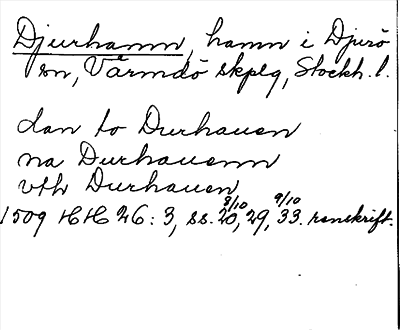 Djurhamn, hamn i Djurö
sn, Värmdö skplg, Stockh. l.
dan to Durhauen
na Durhauenn
vth Durhauen
8/10 9/10
1509 HH 26:3, ss. 20, 29, 33. renskrift.